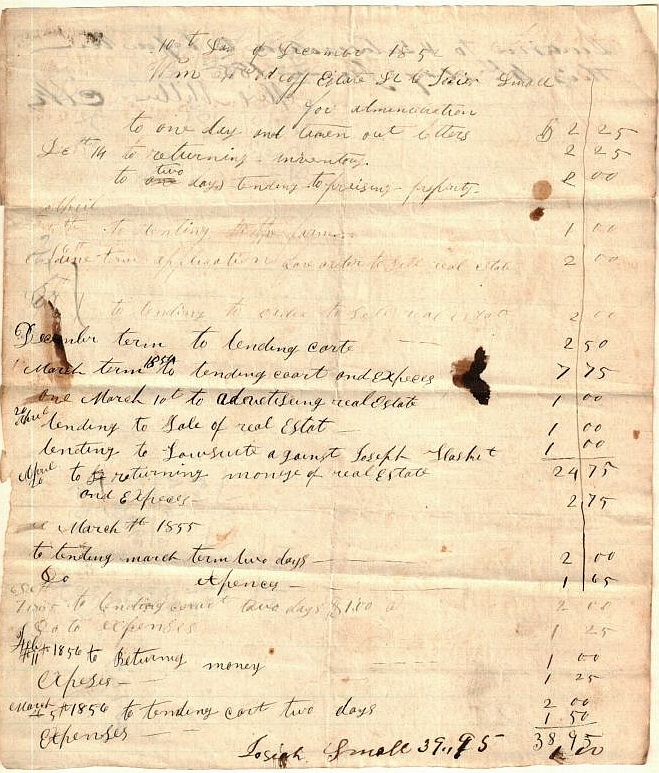 10th Day of December 1852
Wm Estate Dt to Josier Small
for
to one day and taken out letters $ 2 25
De th 14 to returning inventory. 2 25
to two days tending to praising property. 2 00
April
to tending 1 00
June term application for order to sell real estate 2 00
to tending to order to sell real estate 2 00
December term to tending corte 2 50
March term 1854 to tending court and expeces 7 75
one March 10t to advertising real Estate 1 00
April tending to Sale of real Estat 1 00
tending to Lawsuite against Joseph 1 00
24 75
April to returning monye of real Estate
and Expeces 2 75
March th 1855
to tending march term two days 2 00
Do expences 1 65
to tending court two days $1.00 2 00
Do to expenses 1 25
Feb 11th 1856 to Returning money 1 00
Expeses 1 25
March 1856 to tending cort two days 2 00
Expenses 1 50
Josiah Small 39,,95 38 95
1 00